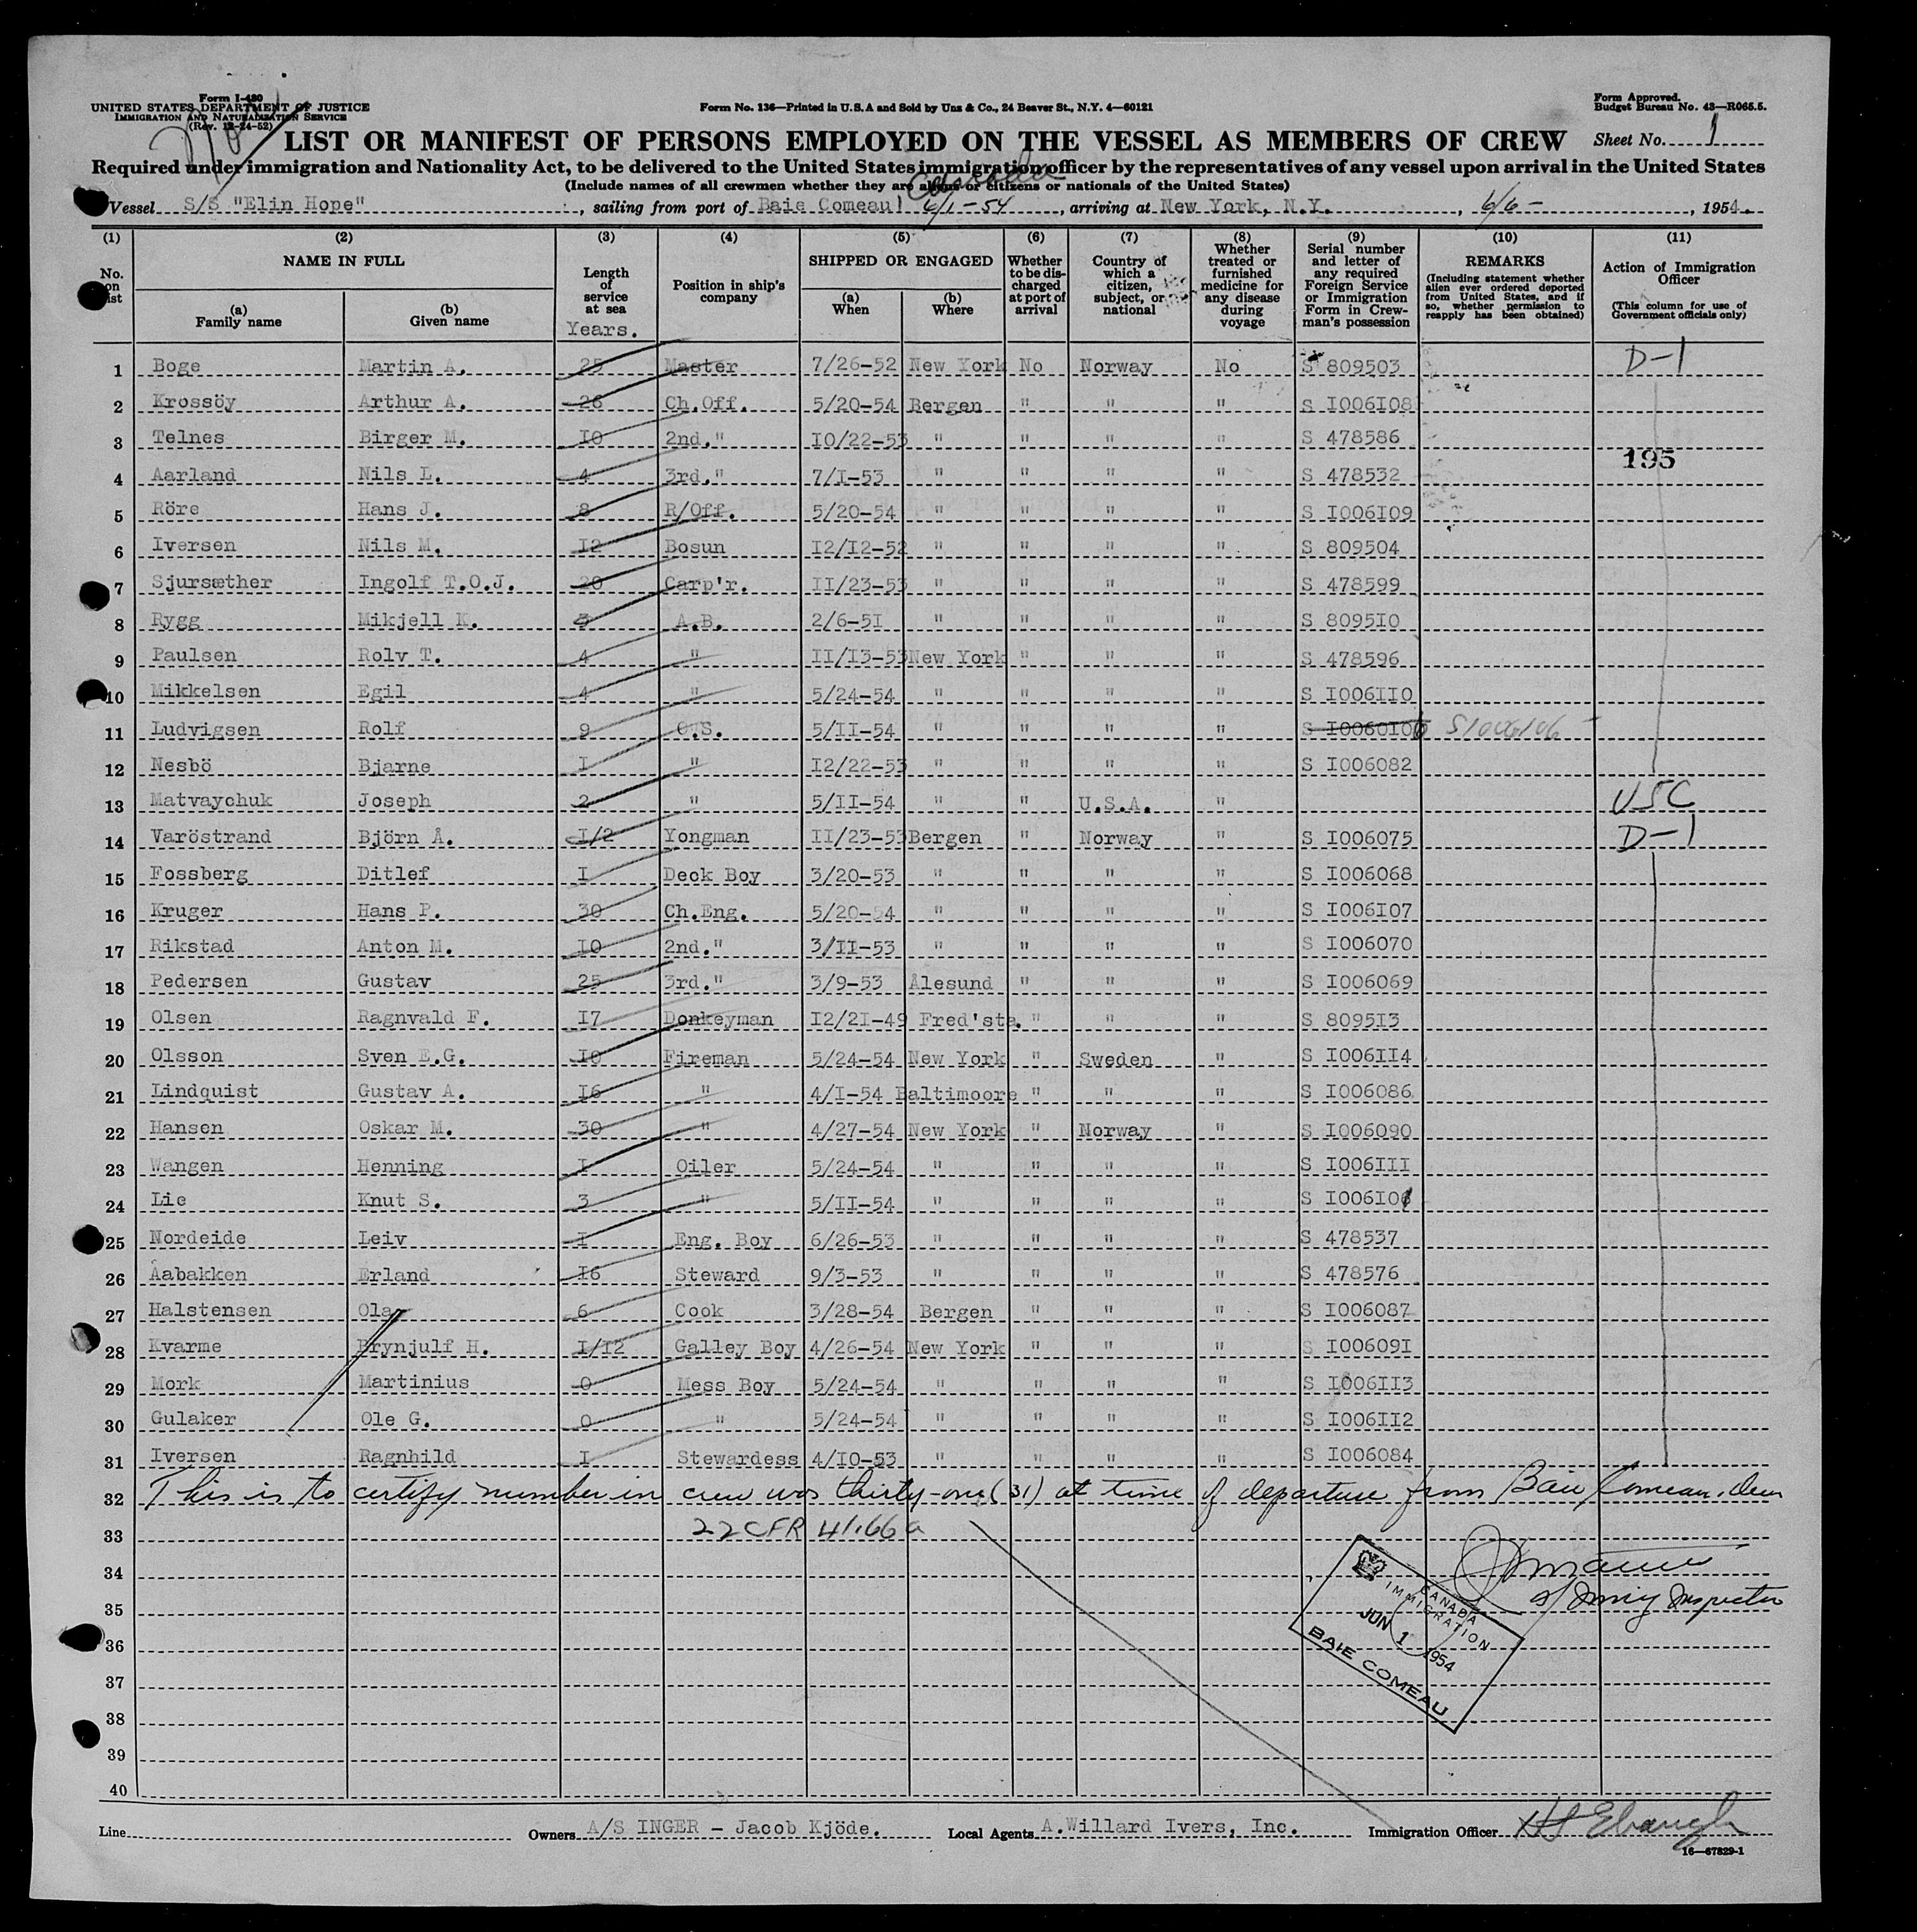 Form I-480
UNITED STATES DEPARTMENT OF JUSTICE
IMMIGRATION AND NATURALIZATION SERVICE
(Rev. 12-24-52)
Form No. 136—Printed in U.S.A and Sold by Unz & Co., 24 Beaver St., N.Y. 4—60121
Form Approved.
Budget Bureau No. 43—R065.5.
LIST OR MANIFEST OF PERSONS EMPLOYED ON THE VESSEL AS MEMBERS OF CREW
Sheet No. 1
Required under immigration and Nationality Act, to be delivered to the United States immigration officer by the representatives of any vessel upon arrival in the United States
(Include names of all crewmen whether they are aliens or citizens or nationals of the United States)
Vessel S/S "Elin Hope", sailing from port of Baie Comeau 6/1-54, arriving at New York, N.Y., 6/6-, 1954.
(1) (2) (3) (4) (5) (6) (7) (8) (9) (10) (11)
No. on list
NAME IN FULL
(a) Family name
(b) Given name
Length of service at sea
Years.
Position in ship's company
SHIPPED OR ENGAGED
(a) When
(b) Where
Whether to be discharged at port of arrival
Country of which a citizen, subject, or national
Whether treated or furnished medicine for any disease during voyage
Serial number and letter of any required Foreign Service or Immigration Form in Crewman's possession
REMARKS
(Including statement whether alien ever ordered deported from United States, and if so, whether permission to reapply has been obtained)
Action of Immigration Officer
(This column for use of Government officials only)
1 Boge Martin A. 25 Master 7/26-52 New York No Norway No S 809503 D-1
2 Krossöy Arthur A. 26 Ch.Off. 5/20-54 Bergen " " " S I006I08
3 Telnes Birger M. I0 2nd." I0/22-53 " " " " S 478586
195
4 Aarland Nils L. 4 3rd." 7/I-53 " " " " S 478532
5 Röre Hans J. 8 R/Off. 5/20-54 " " " " S I006I09
6 Iversen Nils M. I2 Bosun I2/I2-52 " " " " S 809504
7 Sjursæther Ingolf T.O.J. 20 Carp'r. II/23-53 " " " " S 478599
8 Rygg Mikjell K. 3 A.B. 2/6-5I " " " " S 8095I0
9 Paulsen Rolv T. 4 " II/I3-53 New York " " " S 478596
10 Mikkelsen Egil 4 " 5/24-54 " " " " S I006II0
11 Ludvigsen Rolf 9 O.S. 5/II-54 " " " " S I0060I06 S1006106
12 Nesbö Bjarne I " I2/22-53 " " " " S I006082
13 Matvaychuk Joseph 2 " 5/II-54 " " U.S.A. " USC
14 Varöstrand Björn Å. I/2 Yongman II/23-53 Bergen " Norway " S I006075 D-1
15 Fossberg Ditlef I Deck Boy 3/20-53 " " " " S I006068
16 Kruger Hans P. 30 Ch.Eng. 5/20-54 " " " " S I006I07
17 Rikstad Anton M. I0 2nd." 3/II-53 " " " " S I006070
18 Pedersen Gustav 25 3rd." 3/9-53 Ålesund " " " S I006069
19 Olsen Ragnvald F. I7 Donkeyman I2/2I-49 Fred'sta. " " " S 8095I3
20 Olsson Sven E.G. I0 Fireman 5/24-54 New York " Sweden " S I006II4
21 Lindquist Gustav A. I6 " 4/I-54 Baltimoore " " " S I006086
22 Hansen Oskar M. 30 " 4/27-54 New York " Norway " S I006090
23 Wangen Henning I Oiler 5/24-54 " " " " S I006III
24 Lie Knut S. 3 " 5/II-54 " " " " S I006I0
25 Nordeide Leiv I Eng. Boy 6/26-53 " " " " S 478537
26 Aabakken Erland I6 Steward 9/3-53 " " " " S 478576
27 Halstensen Ola 6 Cook 3/28-54 Bergen " " " S I006087
28 Kvarme Brynjulf H. I/I2 Galley Boy 4/26-54 New York " " " S I00609I
29 Mork Martinius 0 Mess Boy 5/24-54 " " " " S I006II3
30 Gulaker Ole G. 0 " 5/24-54 " " " " S I006II2
31 Iversen Ragnhild I Stewardess 4/I0-53 " " " " S I006084
32 This is to certify number in crew was thirty-one (31) at time of departure from Baie Comeau
33 22 CFR 41.66a
34
35
36
37
38
39
40
Immig Inspector
CANADA
IMMIGRATION
JUN 1 1954
BAIE COMEAU
Line
Owners A/S INGER - Jacob Kjöde.
Local Agents A.Willard Ivers, Inc.
Immigration Officer
16—67829-1